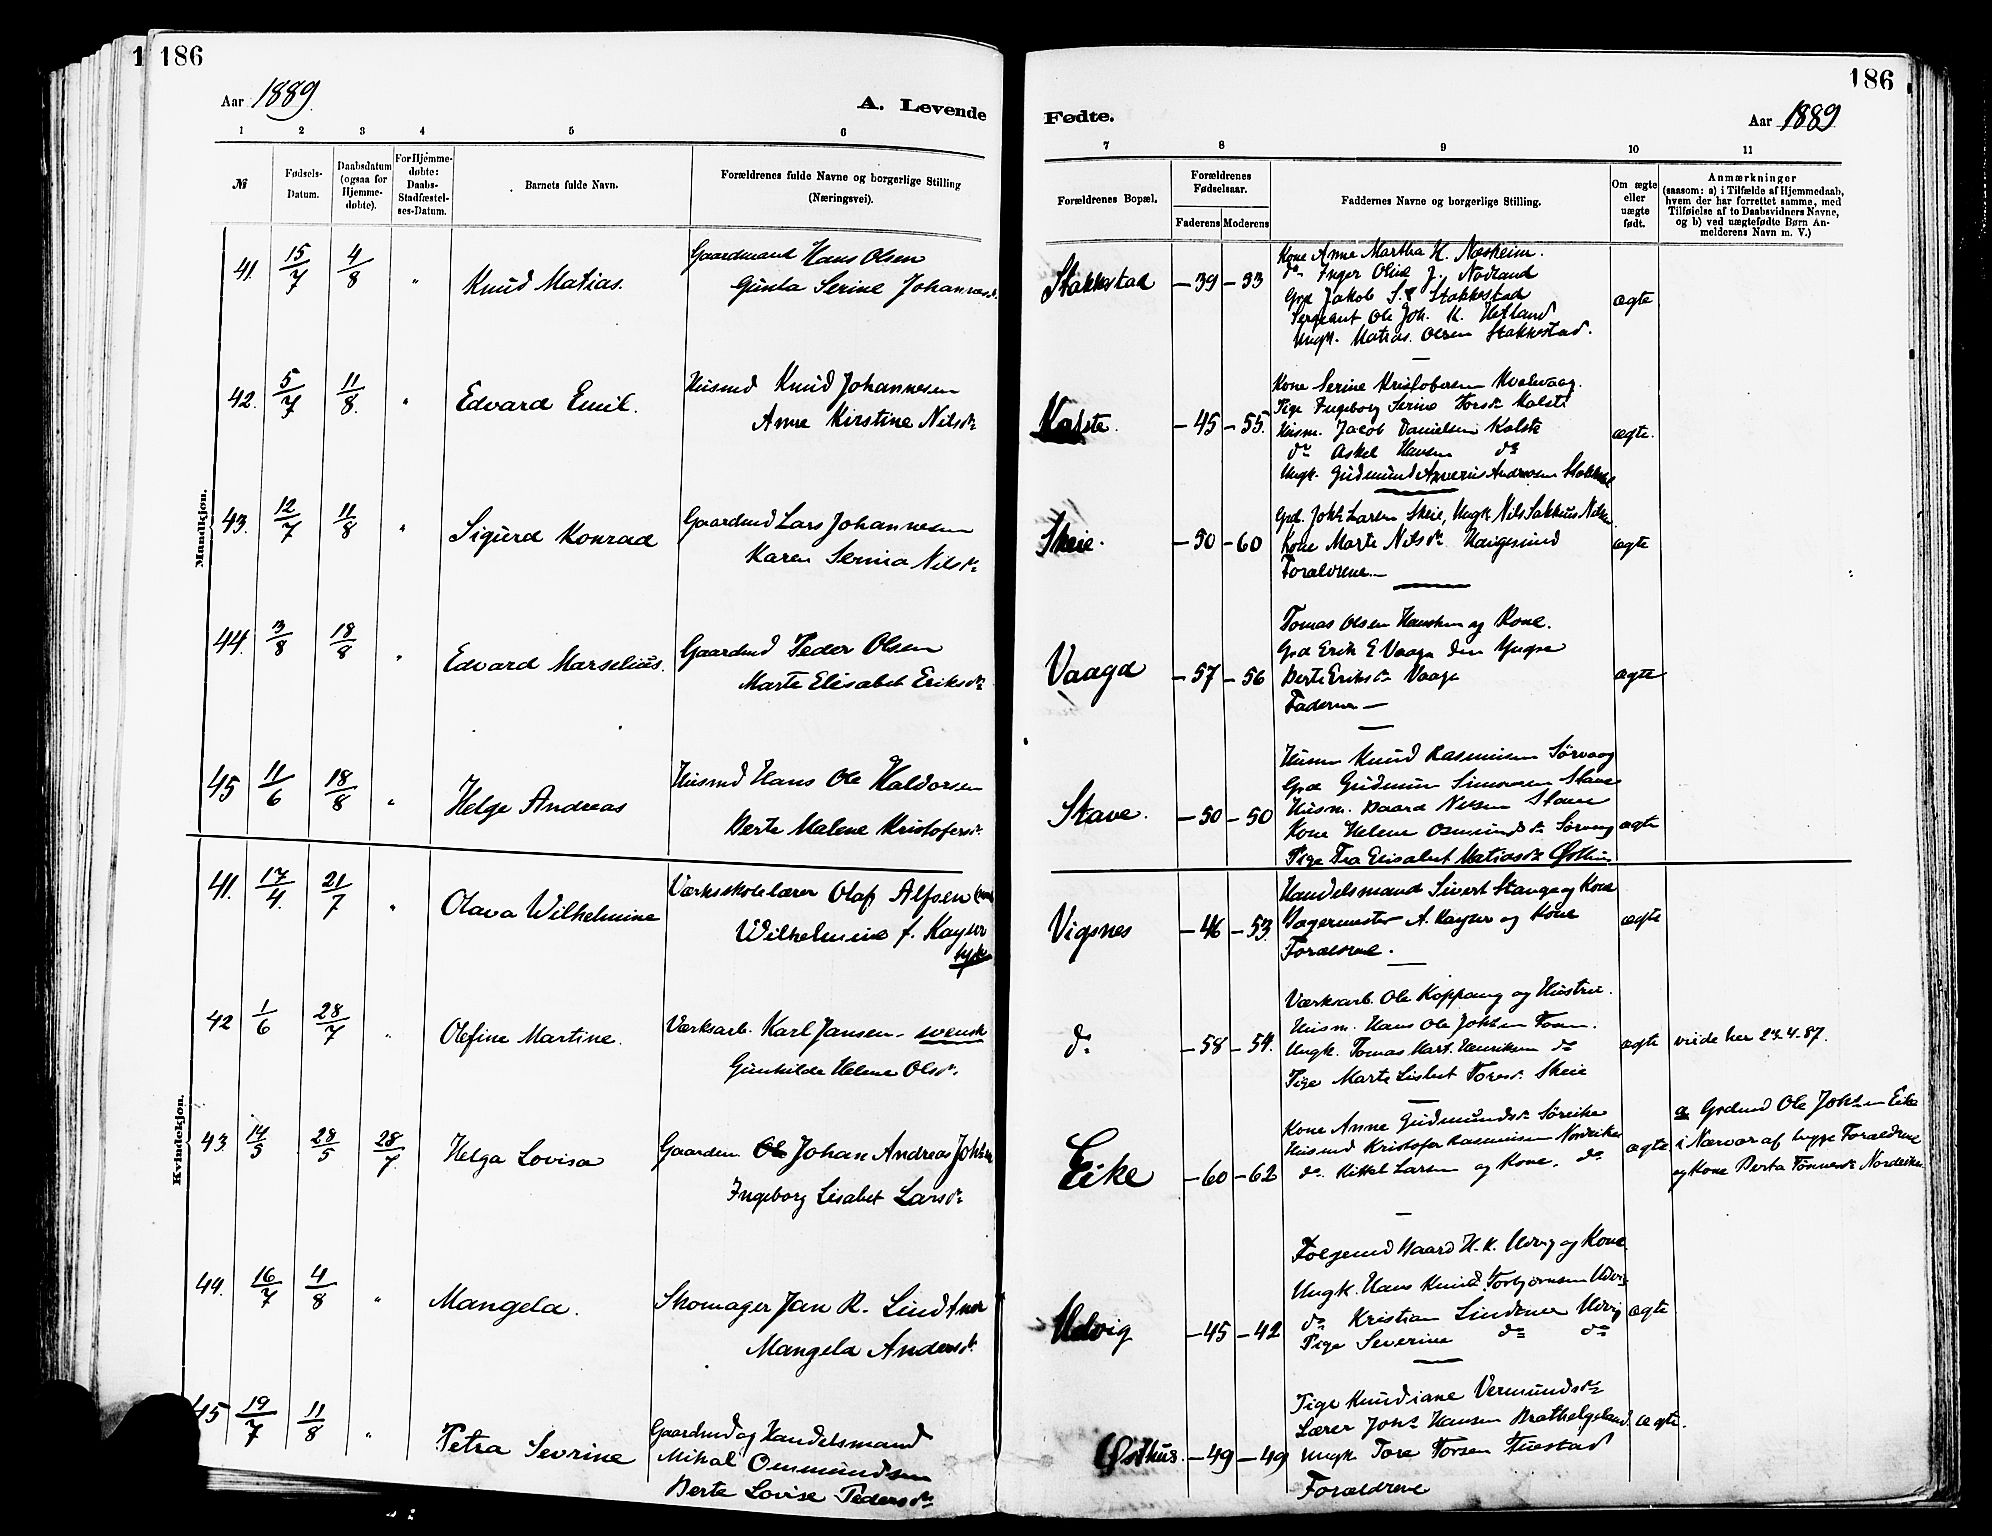 186
Aar 1889.
A. Levende
1 2 3 4 5 6
№
Fødsels-Datum.
Daabsdatum (ogsaa for Hjemme-døbte).
For Hjemme-døbte: Daabs-Stadfæstel-ses-Datum.
Barnets fulde Navn.
Forældrenes fulde Navne og borgerlige Stilling (Næringsvei).
Mandkjøn.
41. 15/7 4/8 " Knud Matias.
Gaardmand Hans Olsen
Gunla Serine Johannesd.
42. 5/7 11/8. " Edvard Emil.
Husmd Knud Johannesen
Anne Kirstine Nilsdr
43. 12/7 11/8 " Sigurd Konrad
Gaardmd Lars Johannesen
Karen Serina Nilsdr
44. 3/8 18/8 " Edvard Marselius.
Gaardmd Peder Olsen
Marte Elisabet Eriksdr
45 11/6 18/8 " Helge Andreas
Husmd Hans Ole Haldorsen
Berte Malene Kristofersdr
Kvindekjøn.
41. 17/4. 21/7 " Olava Wilhelmine
Værksskolelærer Olaf Alfsen
Wilhelmine f. Kayser
tysk
42 1/6 28/7 " Olefine Martine.
Værksarb. Karl Jansen - svensk
Gunhilde Helene Olsdr.
43. 14/5 28/5 28/7 Helga Lovisa
Gaardm. Johan Andreas Johsen
Ingeborg Lisabet Larsdr
44. 16/7 4/8 " Mangela.
Skomager Jan R. Lindtner
Mangela Andersdr.
45 19/7 11/8 " Petra Sevrine
Gaardmd og Handelsmand
Mikal Ommundsen
Berte Lovise Pedersdr
186
Fødte.
Aar 1889.
7 8 9 10 11
Forældrenes Bopæl.
Forældrenes Fødselsaar.
Faderens Moderens
Faddernes Navne og borgerlige Stilling.
Om ægte eller uægte født.
Anmærkninger
(saasom: a) i Tilfælde af Hjemmedaab, hvem der har forrettet samme, med Tilføielse af to Daabsvidners Navne, og b) ved uægtefødte Børn Anmelderens Navn m. V.)
Stakkestad - 39 - 33 ægte
Kone Anne Martha H. Næsheim.
do Inger Oline J. Nodland
Grd Jakob S. Stakkestad
Sergeant Ole Joh. K. Hetland
Ungk. Matias Olsen Stakkestad.
Kalste. - 45 - 55. ægte.
Kone Serine Kristofersen Kvalevaag.
Pige Ingeborg Serine Torsdr Kalste
Husm. Jacob Danielsen Kalste
do Askel Hansen do
Ungk. Gudmund Andreasen
Skeie. - 50 - 60 ægte
Grd. Johs Larsen Skeie, Ungk Nils Sakkus Nilsen
Kone Marte Nilsdr Haugesund
Forældrene
Vaaga - 57 - 56 ægte
Tomas Olsen Hansken og Kone.
Grd Erik E Vaaga den Yngre
Berte Eriksdr Vaaga
Faderen
Stave. - 50 - 50 ægte
Husm Knud Rasmusen Sørvaag
Grd Gudmun Simonsen Stave
Husm. Baard Nilsen Stave
Kone Helene Osmundsdr Sørvaag
Pige Elisabet Matiasdr Østhus
Vigsnes - 46 - 53. ægte
Handelsmand Sivert Stange og Kone
Bagermester A. Kayser og Kone
Forældrene.
do - 58 - 54. ægte
Værksarb. Ole Koppang og Hustru.
Husm. Hans Ole Johsen
Ungk. Tomas Mart. Henriksen do
Pige Marte Lisbet Toresdr Skeie
viede her 23-4-87.
Eike - 60 - 62 ægte
Kone Anne Gudmundsdr Søreike
Husmd Kristofer Rasmusen Nordeike
do. Kittel Larsen og Kone. do
a Grdmd Ole Johsen Eike
i Nærvær af begge Forældrene
og Kone Berta Tønnesdr Nordeike
Udvig - 45 - 42 ægte
Folgemd Baard H. K. Udvig og Kone
Ungk. Hans Knud Torbjørnsen Udvig
do Kristian Lindtner Udvig
Pige Severine do do
Østhus. - 49 - 49 ægte.
Pige Knudiane Vermundsdr
Lærer Johs Hansen Brathelgeland
Ungk Tore Torsen Tuestad
Forældrene